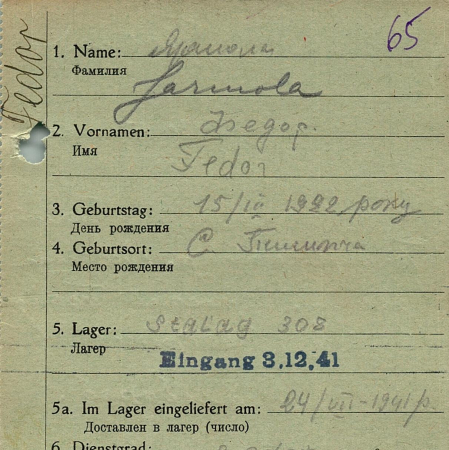 65
Fedor
1. Name: Ярмола
Фамилия
Jarmola
2. Vornamen: Федор.
Имя
Fedor
3. Geburtstag: 15/IV 1922 року
День рождения
4. Geburtsort: С
Место рождения
5. Lager: Stalag 308
Лагер
Eingang 3.12.41
5a. Im Lager eingeliefert am: 24/VII-1941 р.
Доставлен в лагер (число)
6. Dienstgrad: